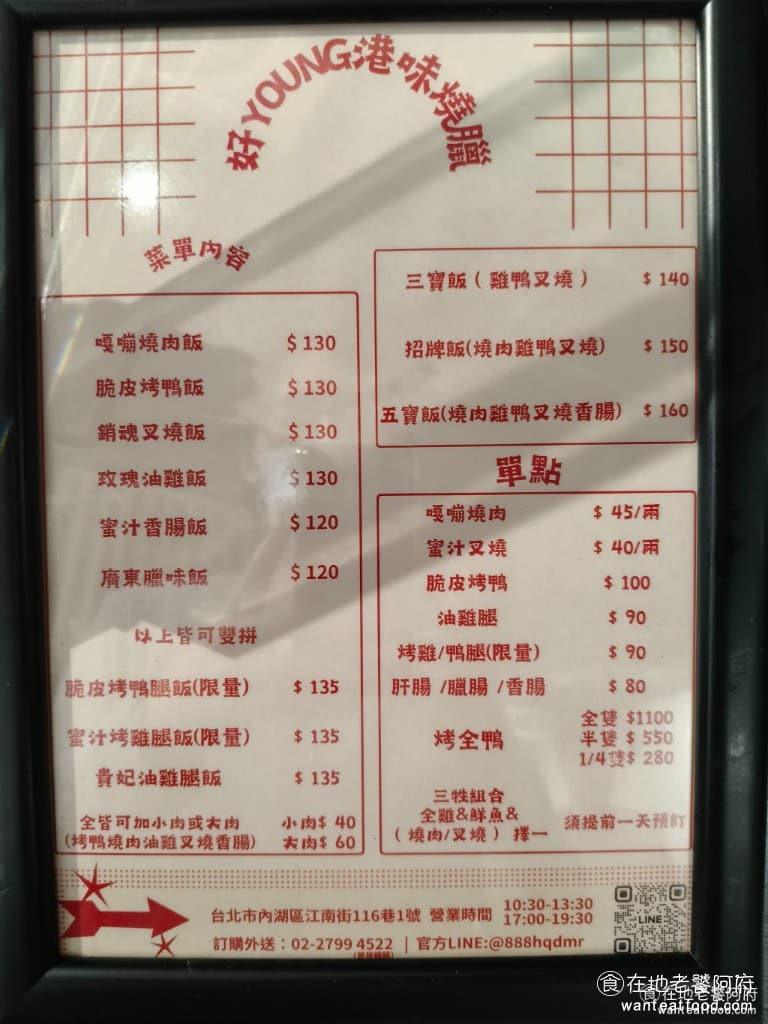 好YOUNG港味燒臘
菜單內容
嘎嘣燒肉飯 $ 130
脆皮烤鴨飯 $ 130
銷魂叉燒飯 $ 130
玫瑰油雞飯 $ 130
蜜汁香腸飯 $ 120
廣東臘味飯 $ 120
以上皆可雙拼
脆皮烤鴨腿飯(限量) $ 135
蜜汁烤雞腿飯(限量) $ 135
貴妃油雞腿飯 $ 135
全皆可加小肉或大肉 小肉$ 40
(烤鴨燒肉油雞叉燒香腸) 大肉$ 60
三寶飯(雞鴨叉燒) $ 140
招牌飯(燒肉雞鴨叉燒) $ 150
五寶飯(燒肉雞鴨叉燒香腸) $ 160
單點
嘎嘣燒肉 $ 45/兩
蜜汁叉燒 $ 40/兩
脆皮烤鴨 $ 100
油雞腿 $ 90
烤雞/鴨腿(限量) $ 90
肝腸 /臘腸 /香腸 $ 80
烤全鴨
全隻 $1100
半隻 $ 550
1/4隻$ 280
三牲組合
全雞&鮮魚&
(燒肉/叉燒)擇一
須提前一天預訂
台北市內湖區江南街116巷1號 營業時間
10:30-13:30
17:00-19:30
訂購外送:02-2799 4522 | 官方LINE:@888hqdmr
LINE
食在地老饕阿府
wanteatfood.com
食在地老饕阿府
wanteatfood.com